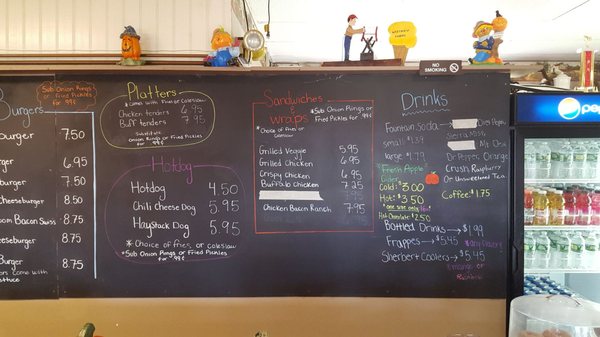 Burgers
Sub Onion Rings
or Fried Pickles
for 99¢
Burger 7.50
6.95
cheeseburger 7.50
cheeseburger 8.50
Bacon Swiss 8.75
cheeseburger 8.75
Burger 8.75
come with
lettuce
Platters
*Come with Fries or Coleslaw
Chicken tenders 6.95
Buff tenders 7.95
Substitute
Onion Rings or Fried Pickles
for 99¢
Hotdog
Hotdog 4.50
Chili Cheese Dog 5.95
Haystack Dog 5.95
*Choice of fries or coleslaw
*Sub Onion Rings or Fried Pickles
for 99¢
Sandwiches
&
wraps
*Choice of
Fries or Coleslaw
*Sub Onion Rings or
Fried Pickles for 99¢
Grilled Veggie 5.95
Grilled Chicken 6.95
Crispy Chicken 6.95
Buffalo Chicken 7.25
Chicken Bacon Ranch 7.95
Drinks
Fountain Soda
small $1.39
large $1.70
Sierra Mist
Mt Dew
Dr Pepper Orange
Crush Raspberry
or Unsweetened Tea
"Fresh Apple
Cider"
Cold: $3.00
Hot: $3.50
Hot Chocolate $2.50
Coffee: $1.75
Bottled Drinks → $1.99
Frappes → $5.45 *any flavor
Sherbert Coolers → $5.45
Orange or
Rainbow
NO
SMOKING
pepsi